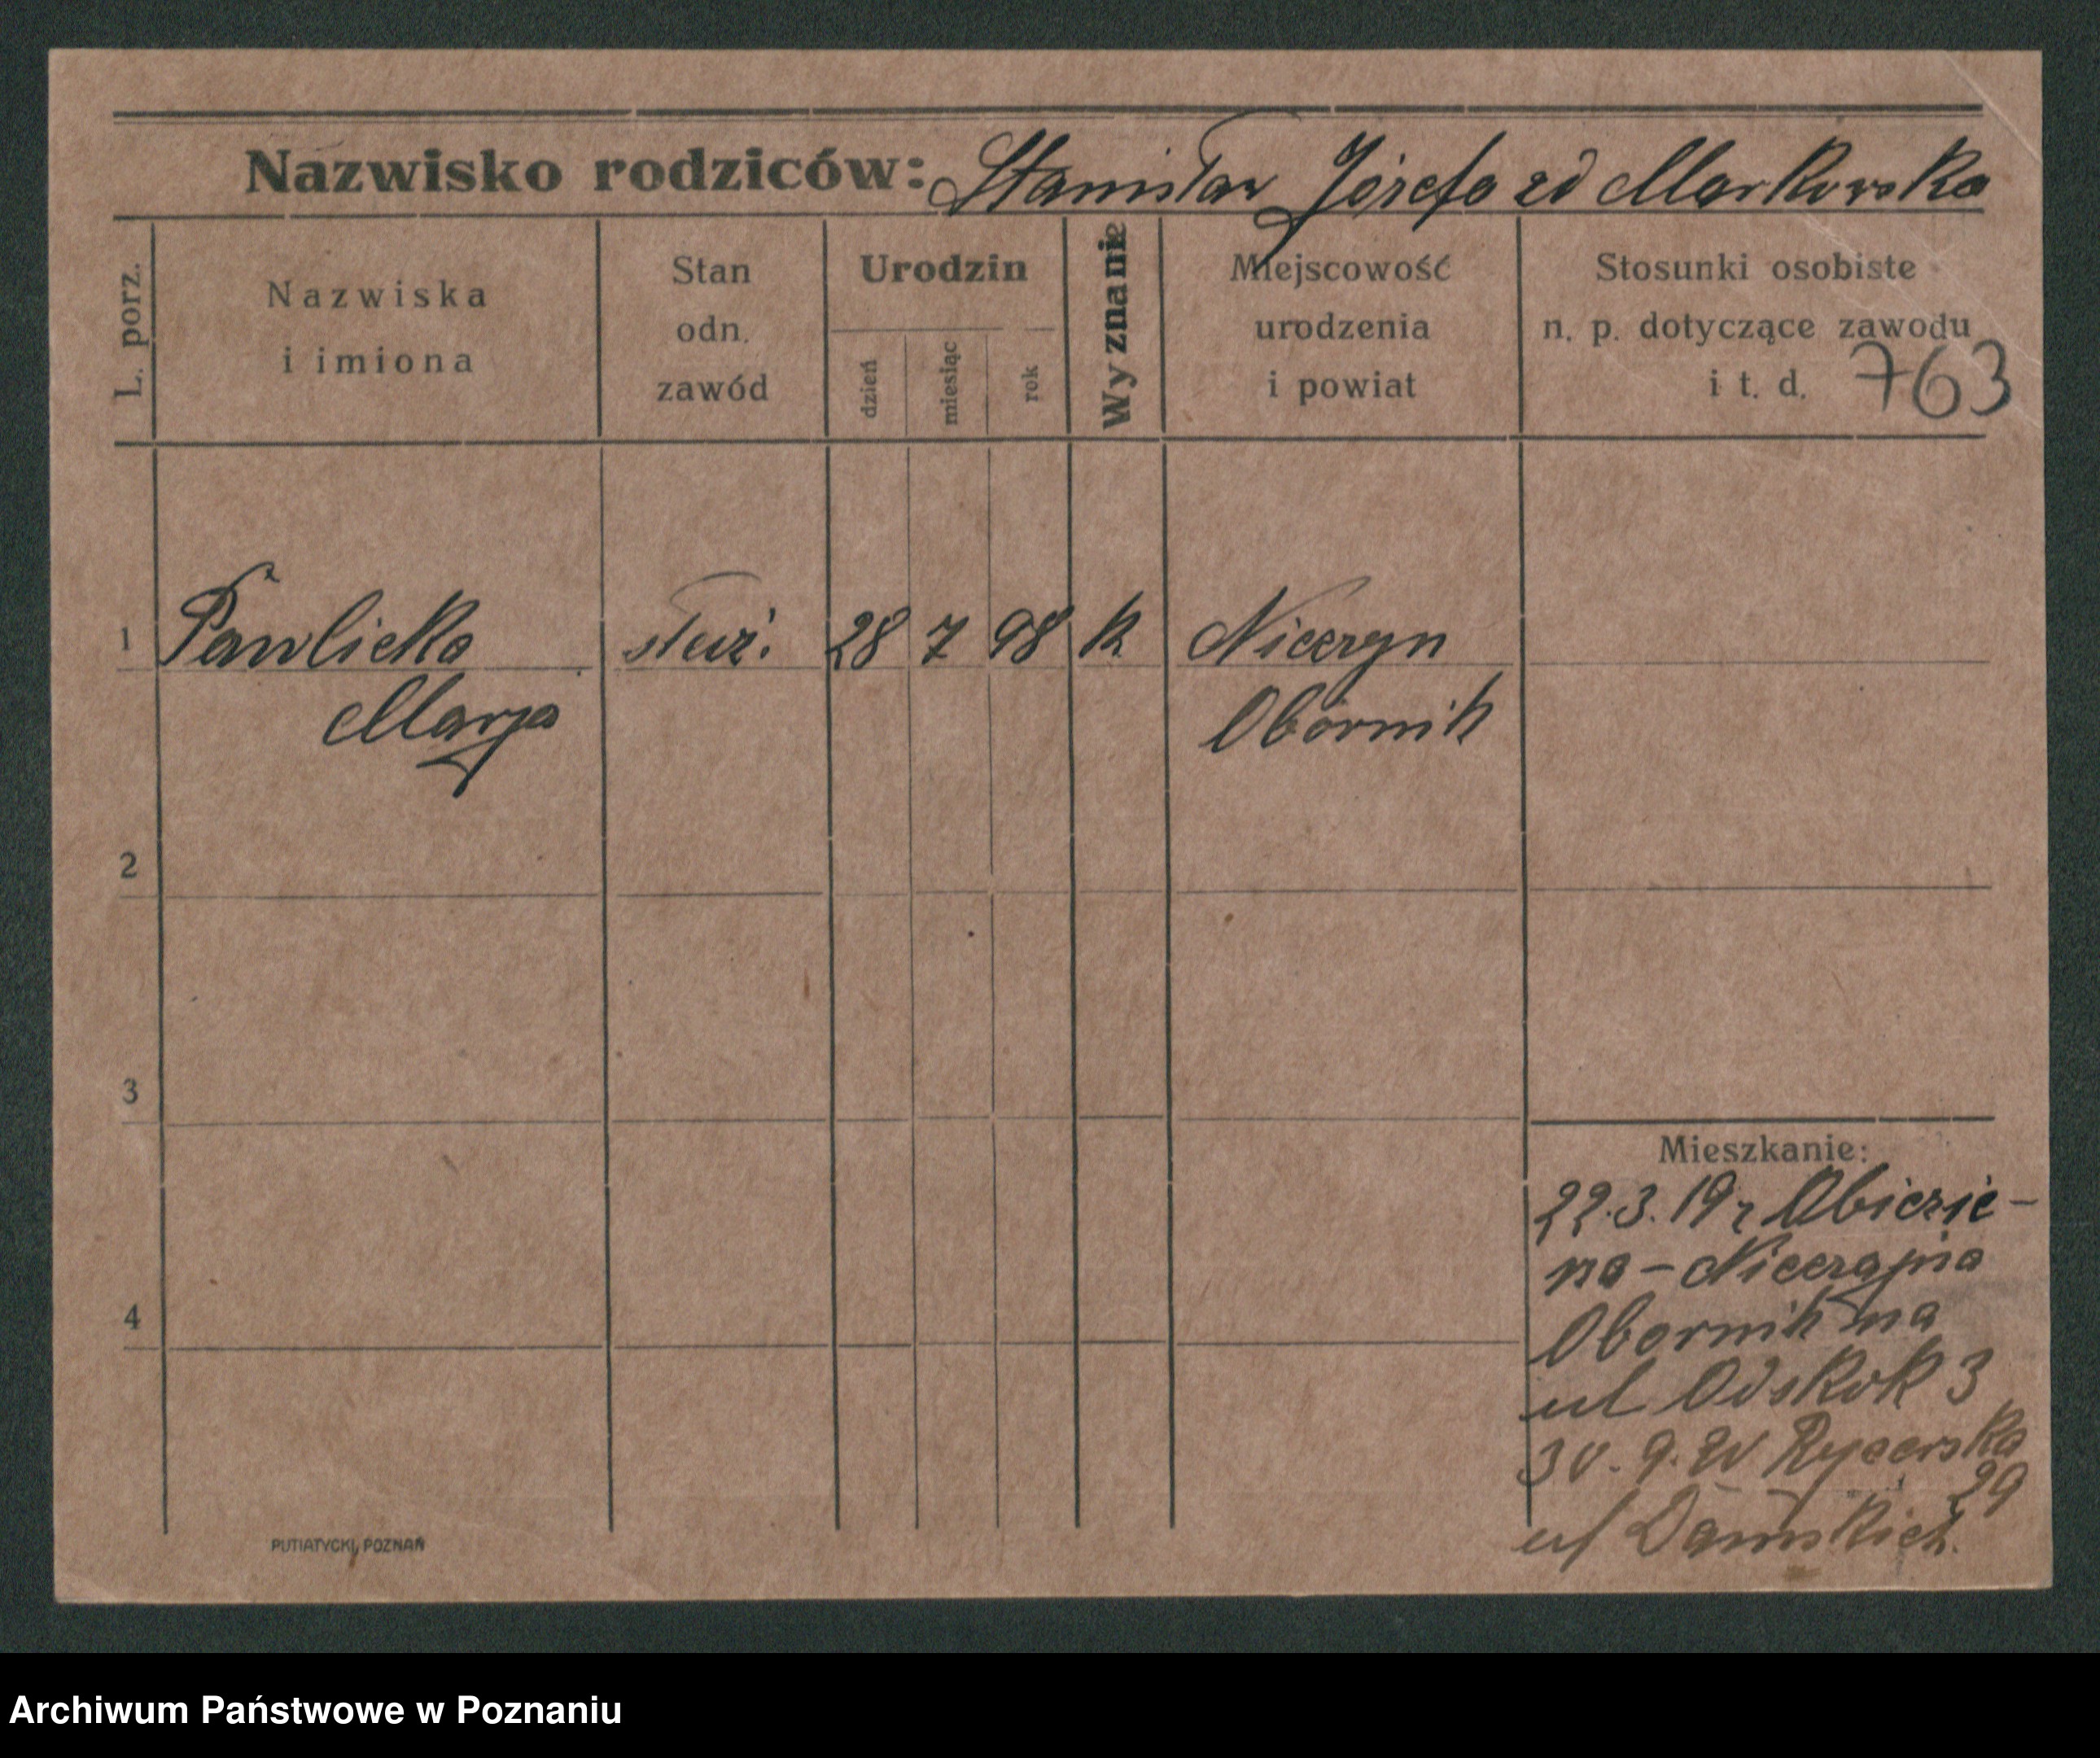 Nazwisko rodziców: Stanisław Józefa zd Markowska
L. porz.
Nazwiska
i imiona
Stan
odn.
zawód
Urodzin
dzień
miesiąc
rok
Wyznanie
Miejscowość
urodzenia
i powiat
Stosunki osobiste
n. p. dotyczące zawodu
i t. d. 763
1 Pawlicka służ. 28 7 98 k Nieczyn
Marja Obornik
2
3
Mieszkanie:
22.3.19 r
Obornik na
4
ul Odskok 3
30. 9. 20 Rycerska
29
ul
PUTIATYCKI, POZNAŃ
Archiwum Państwowe w Poznaniu